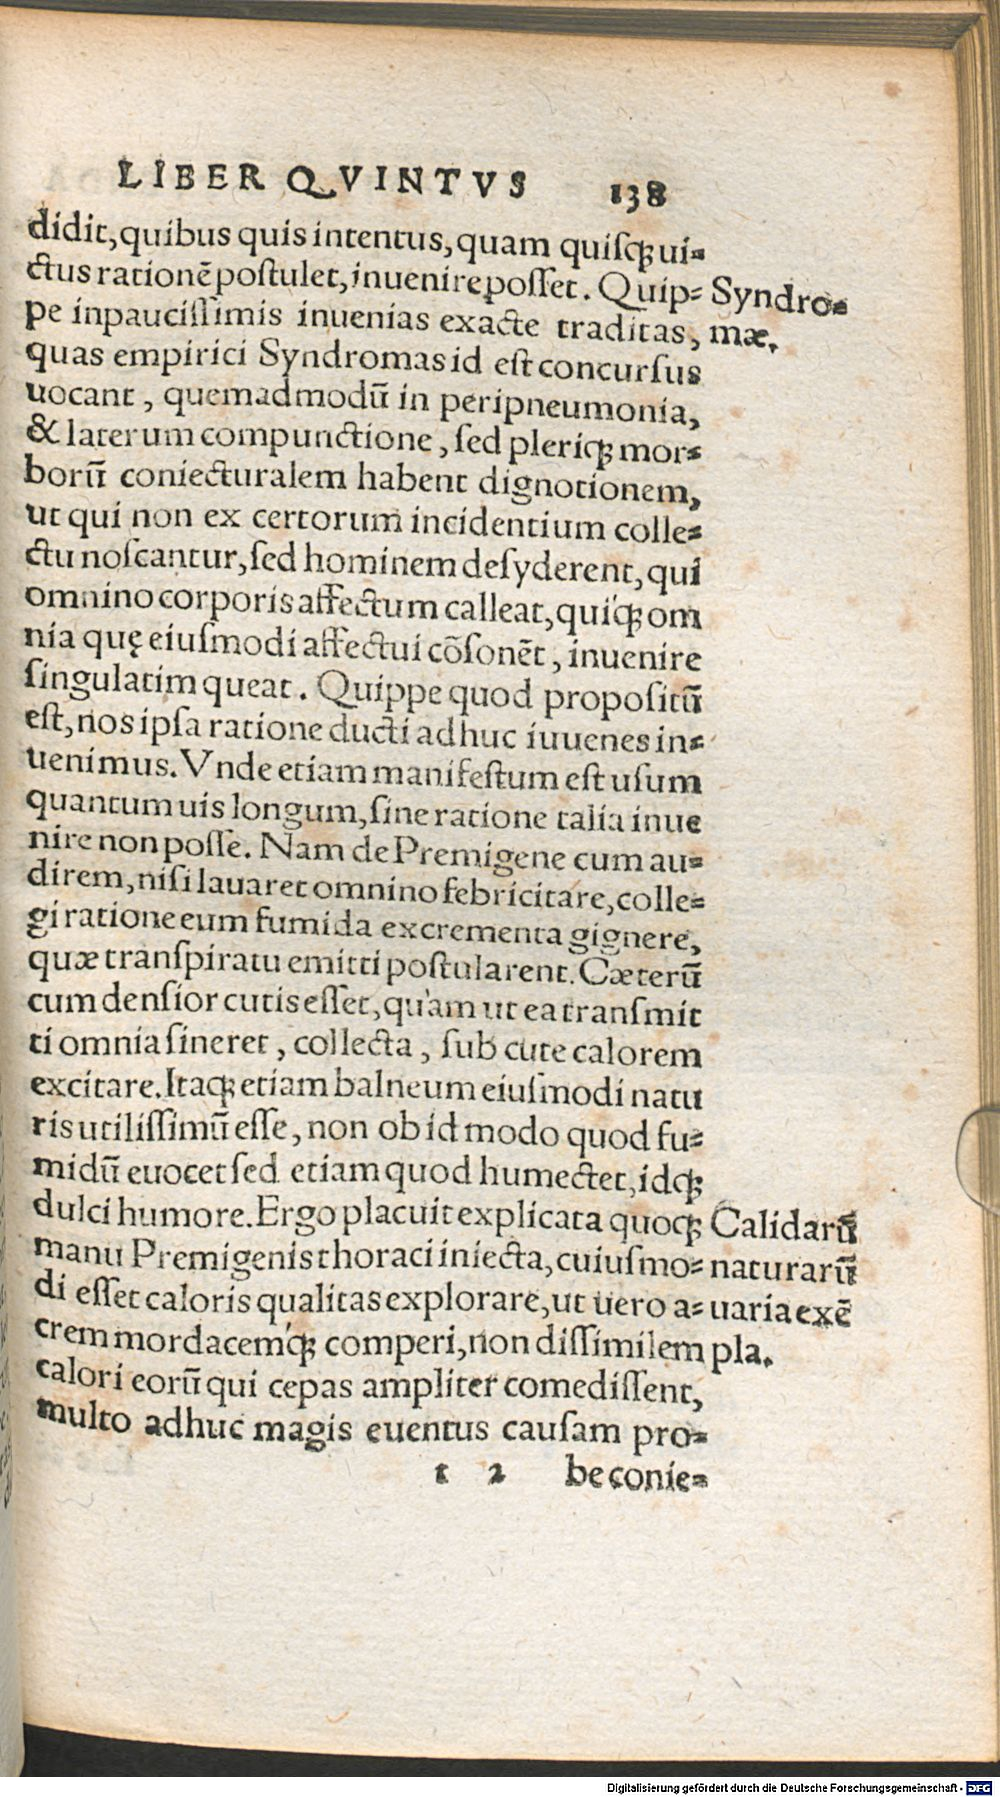 LIBER QVINTVS 138
didit, quibus quis intentus, quam quisq; ui=
ctus rationē postulet, inuenire posset. Quip=
Syndro=
pe inpaucissimis inuenias exacte traditas,
mæ.
quas empirici Syndromas id est concursus
uocant, quemadmodū in peripneumonia,
& laterum compunctione, sed pleriq; mor=
borū coniecturalem habent dignotionem,
ut qui non ex certorum incidentium colle=
ctu noscantur, sed hominem desyderent, qui
omnino corporis affectum calleat, quiq; om
nia quę eiusmodi affectui cōsonēt, inuenire
singulatim queat. Quippe quod propositū
est, nos ipsa ratione ducti adhuc iuuenes in=
uenimus. Vnde etiam manifestum est usum
quantum uis longum, sine ratione talia inue
nire non posse. Nam de Premigene cum au=
direm, nisi lauaret omnino febricitare, colle=
gi ratione eum fumida excrementa gignere,
quæ transpiratu emitti postularent. Cæterū
cum densior cutis esset, quàm ut ea transmit
ti omnia sineret, collecta, sub cute calorem
excitare. Itaq; etiam balneum eiusmodi natu
ris utilissimū esse, non ob id modo quod fu=
midū euocet sed etiam quod humectet, idq;
dulci humore. Ergo placuit explicata quoq;
Calidarū
manu Premigenis thoraci iniecta, cuiusmo=
naturarū
di esset caloris qualitas explorare, ut uero a=
uaria exē
crem mordacemq́; comperi, non dissimilem
pla.
calori eorū qui cepas ampliter comedissent,
multo adhuc magis euentus causam pro=
1 2 be conie=
Digitalisierung gefördert durch die Deutsche Forschungsgemeinschaft - DFG